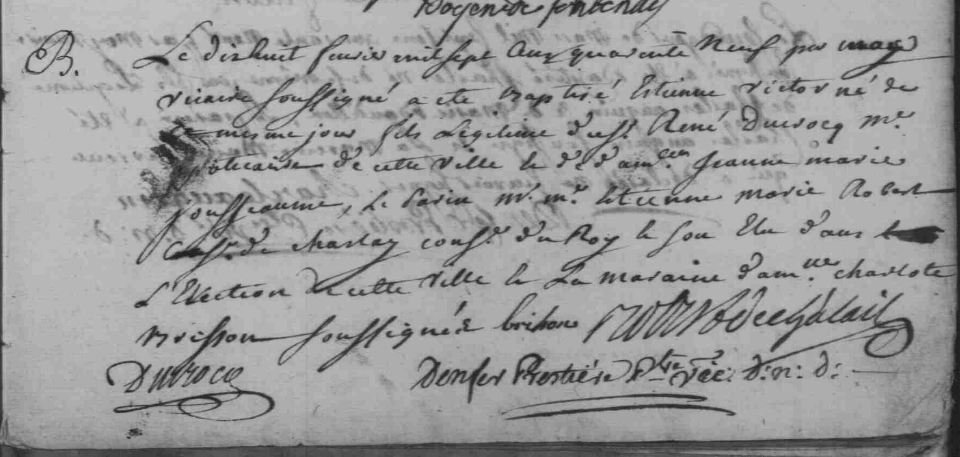 Doyen de fontenay
B. Le dixhuit fevrier mil sept Cens quarante Neuf par moy
vicaire soussigné a eté Baptisé Etienne victor né de
ce mesme jour fils Legitime d'est René Ducrocq me
apoticaire de cette ville & de dam.elle Jeanne marie
jousseaume, Le Parin mr. me Etienne marie Robert
de Chaslay consr. du Roy & son Elu dans
L'Election de cette ville & La maraine dam.lle charlote
Brisson soussignés brisson Robert de chalais
Ducrocq Denfer Prestre vic. d. n. d.